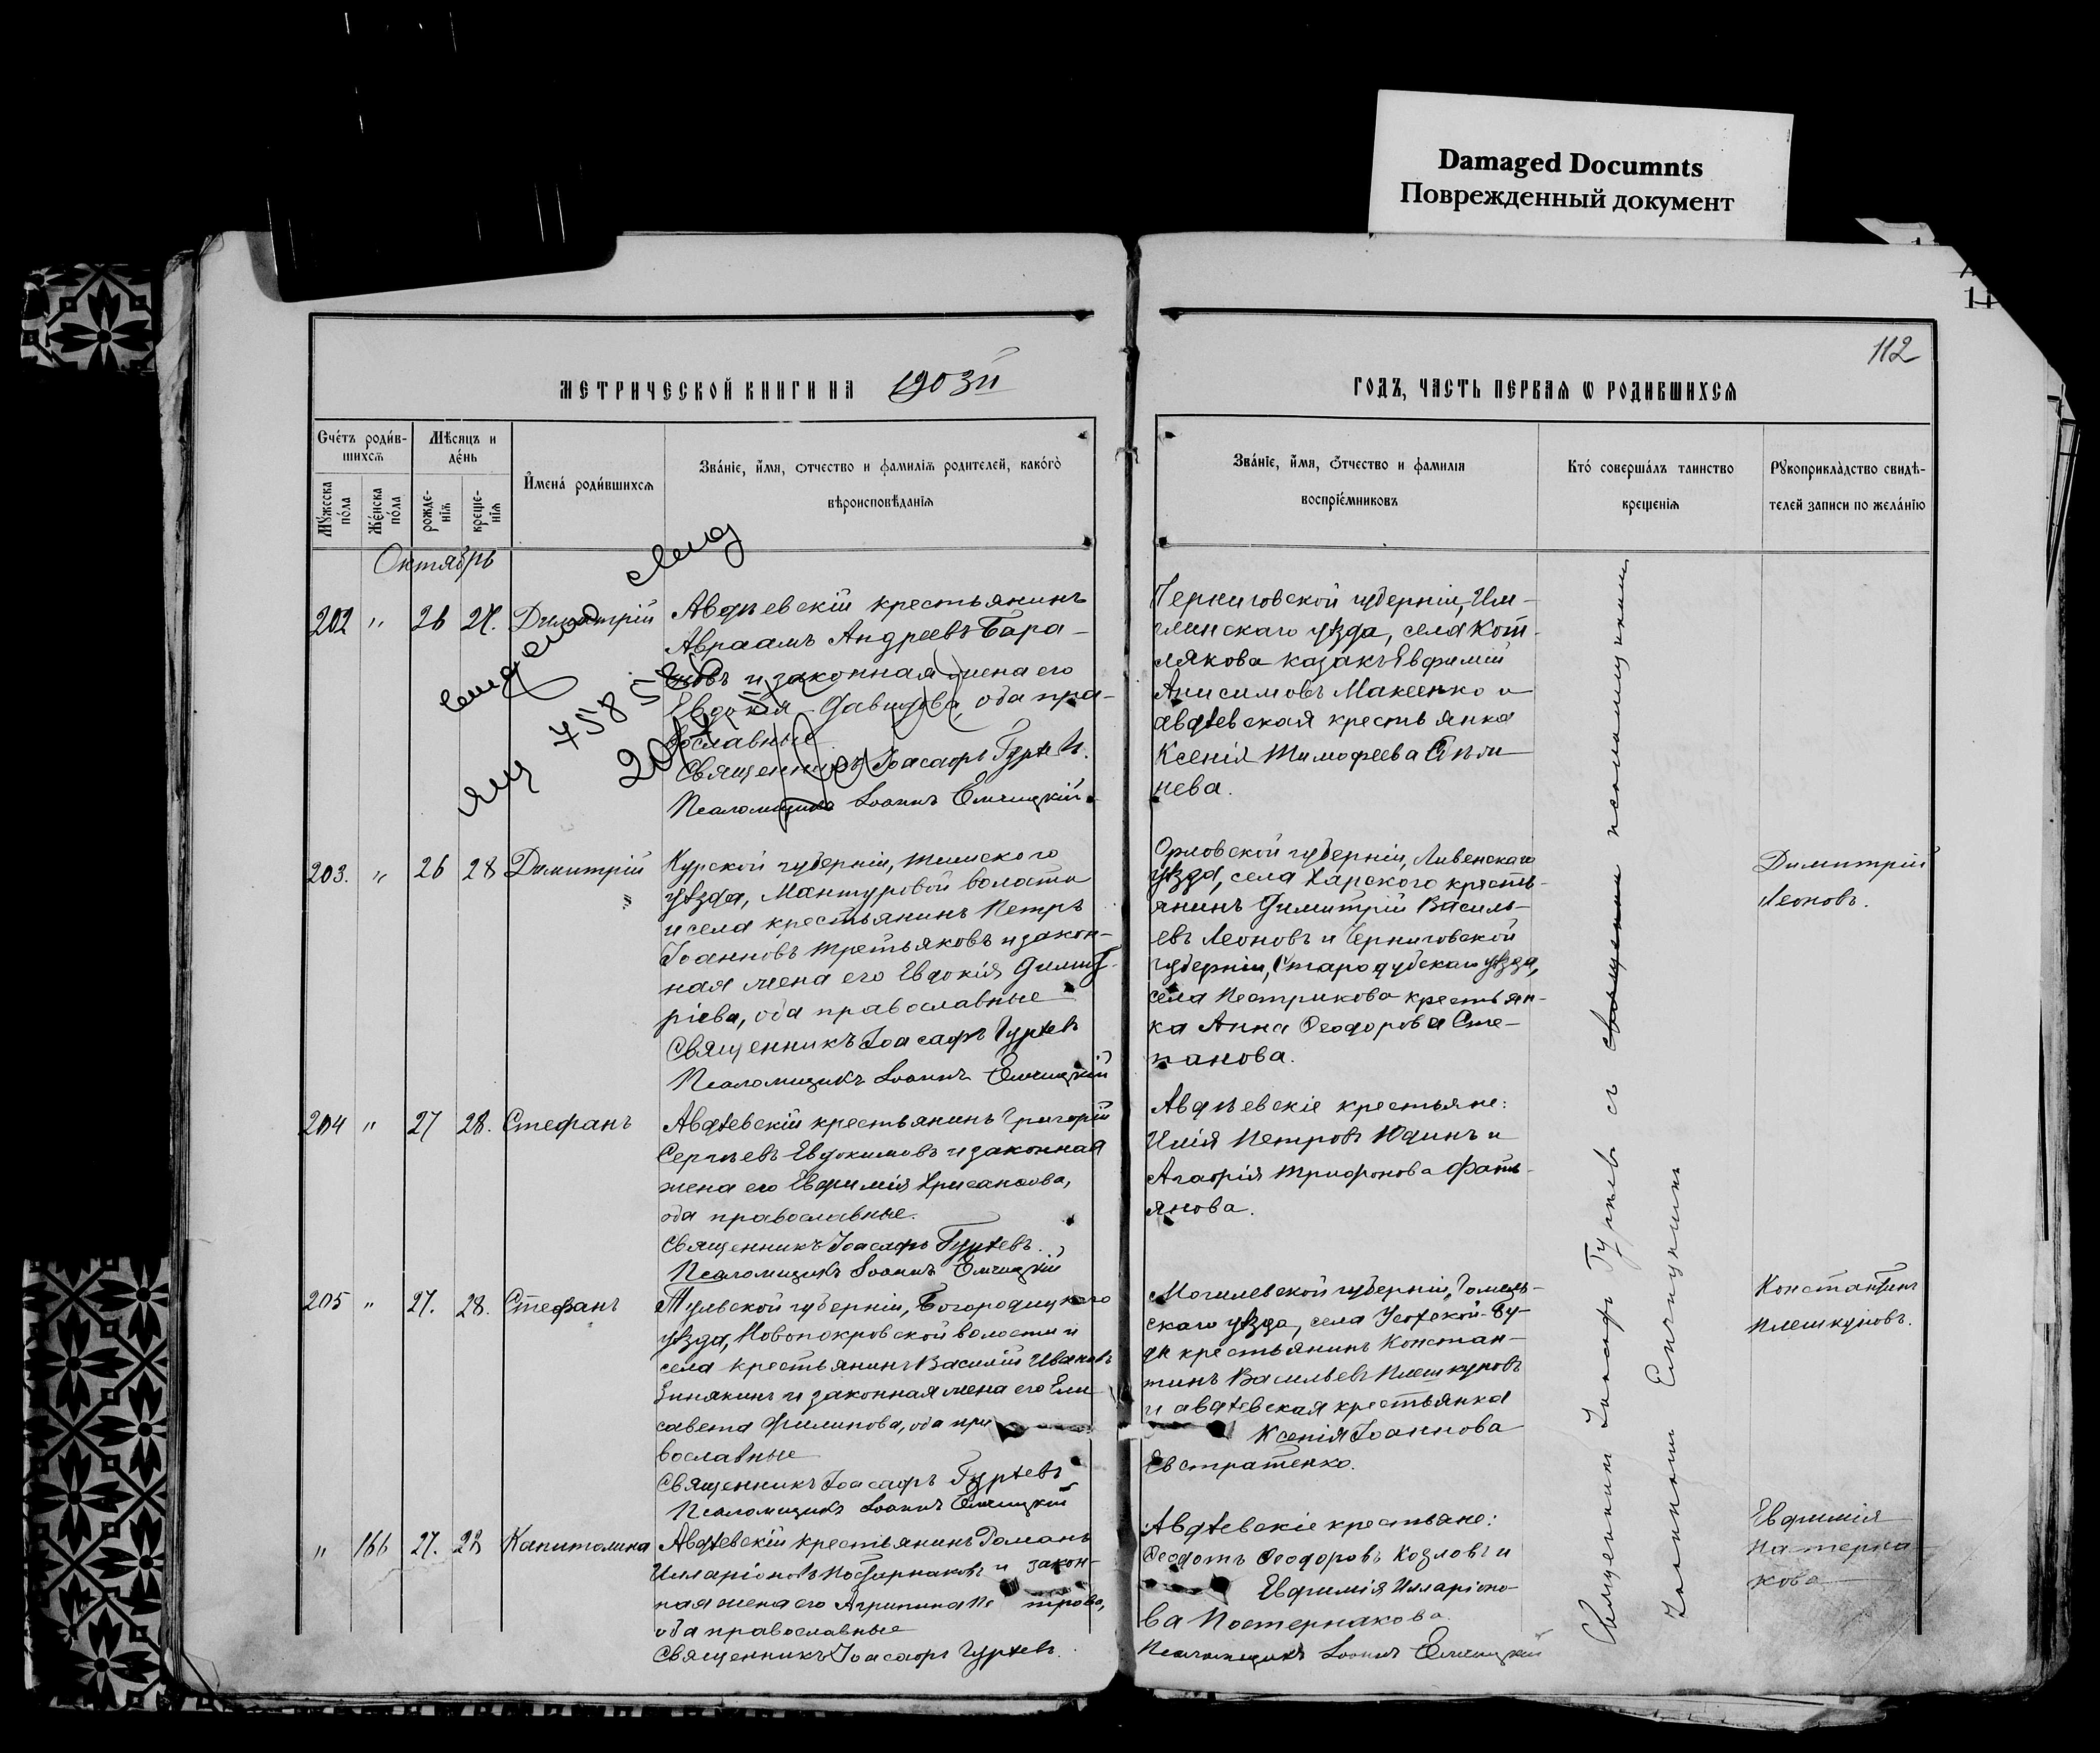 Damaged Documnts
Поврежденный документ
112
МЕТРИЧЕСКОЙ КНИГИ НА 1903й
ГОДЪ, ЧАСТЬ ПЕРВАЯ Ѡ РОДИВШИХСЯ
Счетъ родив-
шихся
Мужеска
пола
Женска
пола
Мѣсяцъ и
день
рожде-
нія
креще-
нія
Имена родившихся
Званіе, имя, отчество и фамилія родителей, какого
вѣроисповѣданія
Званіе, имя, отчество и фамилія
воспріемниковъ
Кто совершалъ таинство
крещенія
Рукоприкладство свидѣ-
телей записи по желанію
Октябрь
202 " 26 27. Димитрій
Авдѣевскій крестьянинъ
Авраамъ Андреевъ Бара-
новъ и законная жена его
Евдокія Давидова, оба пра-
вославные
Священникъ Іоасафъ Гурѣевъ.
Псаломщикъ Іоаннъ
Черниговской губерніи,
глинскаго уѣзда, села Кот-
лякова казакъ Евфимій
Анисимовъ Макеенко и
авдѣевская крестьянка
Ксенія Тимофеева
нева.
203. " 26 28 Димитрій
Курской губерніи, Тимскаго
уѣзда, Мантуровой волости
и села крестьянинъ Петръ
Іоанновъ Третьяковъ и закон-
ная жена его Евдокія Димит-
ріева, оба православные
Священникъ Іоасафъ Гурѣевъ
Псаломщикъ Іоаннъ
Орловской губерніи, Ливенскаго
уѣзда, села крестъ-
янинъ Димитрій Василь-
евъ Леоновъ и Черниговской
губерніи, Стародубскаго уѣзда,
села Пестрикова крестьян-
ка Анна Ѳеодорова Сте-
панова.
Димитрій
Леоновъ.
204 " 27 28. Стефанъ
Авдѣевскій крестьянинъ Григорій
Сергѣевъ Евдокимовъ и законная
жена его Евфимія Хрисанфова,
оба православные.
Священникъ Іоасафъ Гурѣевъ.
Псаломщикъ Іоаннъ
Авдѣевскіе крестьяне:
Илія Петровъ Юдинъ и
Агафія Трифонова Фать-
янова.
205 " 27. 28. Стефанъ
Тульской губерніи, Богородицкаго
уѣзда, Новопокровской волости и
села крестьянинъ Василій Ивановъ
Зинякинъ и законная жена его Ели-
савета Филипова, оба пра
вославные
Священникъ Іоасафъ Гурѣевъ
Псаломщикъ Іоаннъ
Могилевской губерніи, Гомель-
скаго уѣзда, села Усохской-Бу-
ды крестьянинъ Констан-
тинъ Васильевъ Плешкуновъ
и авдѣевская крестьянка
Ксенія Іоаннова
Евстратенко.
Константинъ
Плешкуновъ.
" 166 27. 28 Капитолина
Авдѣевскій крестьянинъ Романъ
Илларіоновъ Постернаковъ и закон-
ная жена его Агрипина Петрова,
оба православные
Священникъ Іоасафъ Гурѣевъ.
Авдѣевскіе крестьяне:
Ѳеодотъ Ѳеодоровъ Козловъ и
Евфимія Илларіоно-
ва Постернакова
Псаломщикъ Іоаннъ
Евфимія
Патерна
кова
Священникъ Іоасафъ Гурѣевъ съ псаломщикомъ
Іоанномъ